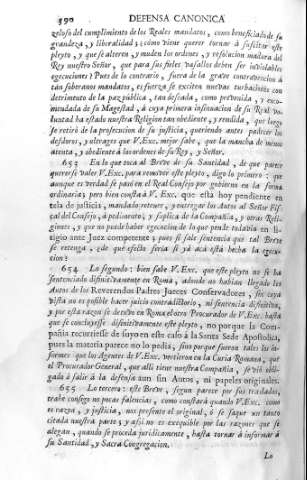 590 DEFENSA CANONICA
zeloso del cumplimiento de los Reales mandatos, como beneficiado de su
grandeza, y liberalidad; ¿còmo viene querer tornar à suscitar este
pleyto, y que se alteren, y muden los ordenes, y resolucion madura del
Rey nuestro Señor, que para sus fieles vasallos deben ser inviolables
egecuciones? Pues de lo contrario, fuera de la grave contravencion à
tan soberanos mandatos, es fuerza se exciten nuevas turbaciones con
detrimento de la paz pública, tan deseada, como pretendida, y
mendada de su Magestad, à cuya primera insinuacion de su Real vo-
luntad ha estado nuestra Religion tan obediente, y rendida, que luego
se retiró de la prosecucion de su justicia, queriendo antes padecer los
desdoros, y ultrages que V. Exc. mejor sabe, que la mancha de menos
atenta, y obediente à los ordenes de su Rey, y Señor.
653 En lo que toca al Breve de su Santidad, de que parece
quererse valer V. Exc. para remover este pleyto, digo lo primero: que
aunque es verdad se pasó en el Real Consejo por gobierno en la forma
ordinaria; pero bien constará V. Exc. que está hoy pendiente en
tela de justicia, mandado retener, y entregar los Autos al Señor Fis-
cal del Consejo, à pedimento, y suplica de la Compañia, y otras Reli-
giones, y que no puede haber egecucion de lo que pende todavia en li-
tigio ante Juez competente; pues si sale sentencia que tal Breve
se retenga, ¿de qué efecto seria si yá acá està hecha la egecu-
cion?
654 Lo segundo: bien sabe V. Exc. que este pleyto no se ha
sentenciado difinitivamente en Roma, adonde no habian llegado los
Autos de los Reverendos Padres Jueces Conservadores, sin cuya
vista no es posible hacer juicio contradictorio, ni sentencia difinitiva,
y por esta razon se detuvo en Roma el otro Procurador de V. Exc. hasta
que se concluyesse difinitivamente este pleyto, no porque la Com-
pañia recurriesse de suyo en este caso à la Santa Sede Apostolica,
pues la materia parece no lo pedia, sino porque fueron tales los in-
formes que los Agentes de V. Exc. vertieron en la Curia Romana, que
el Procurador General, que allí tiene nuestra Compañia, se vió obli-
gado à salir à la defensa aun sin Autos, ni papeles originales.
655 Lo tercero: este Breve, segun parece por sus traslados,
trahe consigo no pocas falencias, como constará quando V. Exc. como
es razon, y justicia, nos presente el original, ò se saque un tanto
citada nuestra parte; y assi no es exequible por las razones que se
alegan, quando se proceda juridicamente, hasta tornar à informar à
su Santidad, y Sacra Congregacion.
Lo